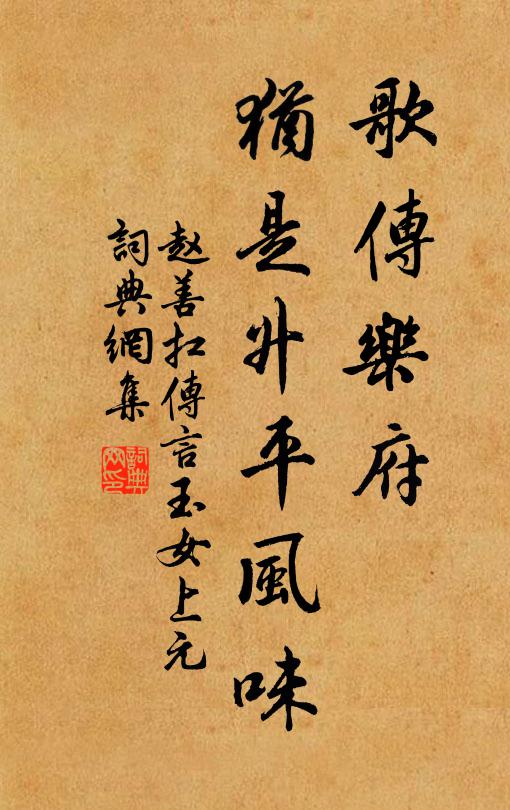 歌傳樂府
猶是升平風味
赵善扛傳言玉女上元
詞典網集
詞典網印